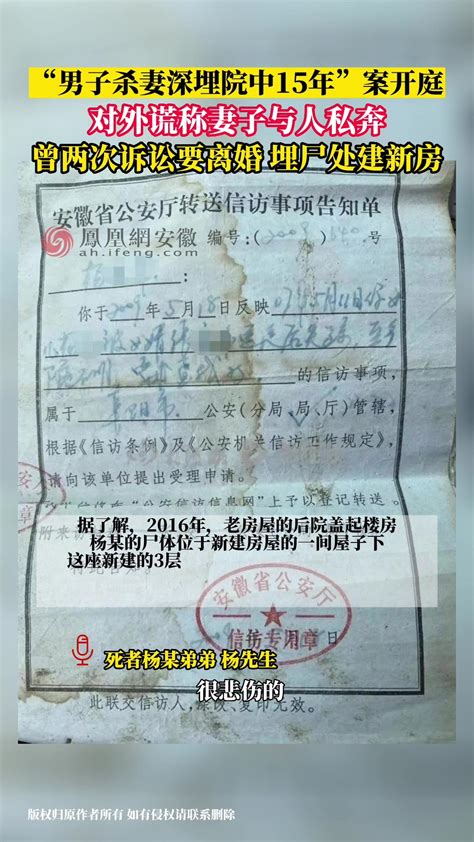 “男子杀妻深埋院中15年”案开庭
对外谎称妻子与人私奔
曾两次诉讼要离婚 埋尸处建新房
安徽省公安厅转送信访事项告知单
鳳凰網安徽
ah.ifeng.com
编号：(2009) 号
：
你于2009年5月18日反映07年5月11日
的信访事项，
属于阜阳市公安(分局、局、厅)管辖，
根据《信访条例》及《公安机关信访工作规定》，
请向该单位提出受理申请。
公安信访信息网”上予以登记转送。
据了解，2016年，老房屋的后院盖起楼房
杨某的尸体位于新建房屋的一间屋子下
这座新建的3层
安徽省公安厅
信访专用章
死者杨某弟弟 杨先生
很悲伤的
此联交信访人，涂改、复印无效。
版权归原作者所有 如有侵权请联系删除